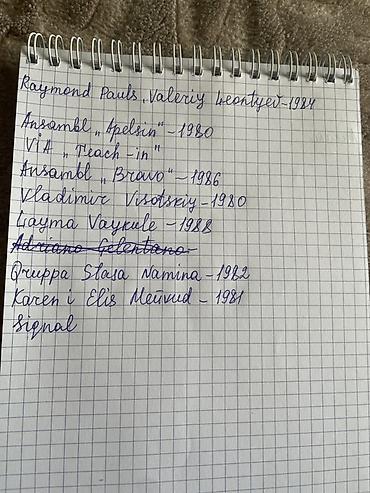 Raymond Pauls, Valeriy Leontyev-1984
Ansambl „Apelsin"-1980
VIA „Teach-in"
Ansambl „Bravo"-1986
Vladimir Visotskiy-1980
Layma Vaykule-1988
Adriano Celentano-
Gruppa Stasa Namina-1982
Karen i Elis Meйvud-1981
Signal